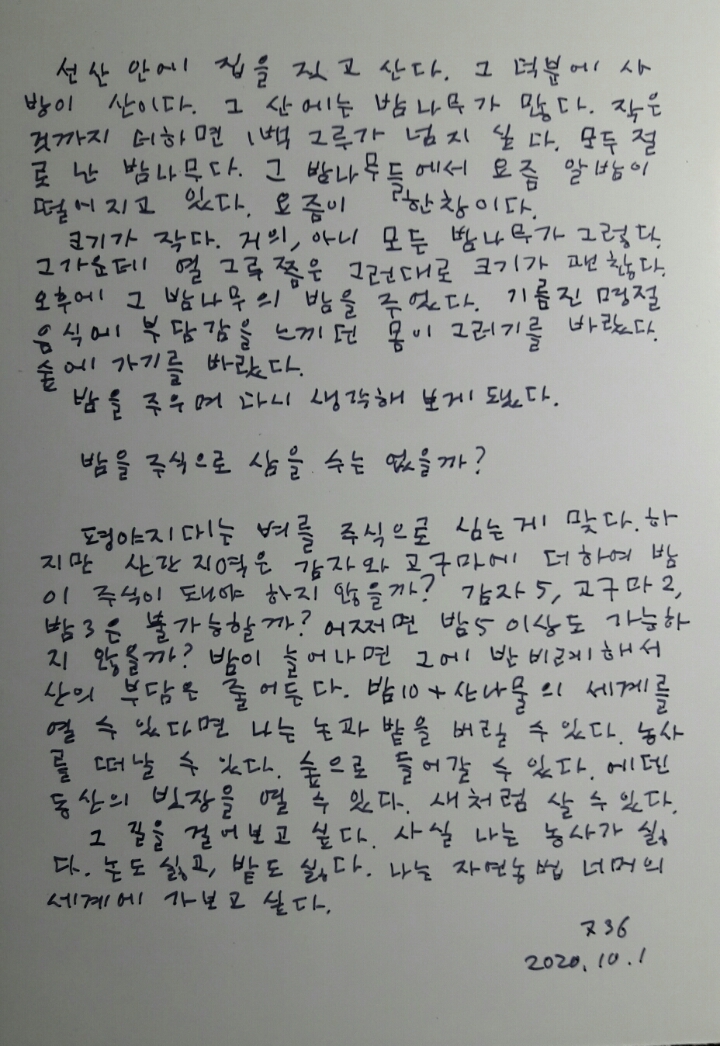 선산 안에 집을 짓고 산다. 그 덕분에 사
방이 산이다. 그 산에는 밤나무가 많다. 작은
것까지 더하면 1백 그루가 넘지 싶다. 모두 절
로 난 밤나무다. 그 밤나무들에서 요즘 알밤이
떨어지고 있다. 요즘이 한창이다.
크기가 작다. 거의, 아니 모든 밤나무가 그렇다.
그 가운데 열 그루쯤은 그런대로 크기가 괜찮다.
오후에 그 밤나무의 밤을 주웠다. 기름진 명절
음식에 부담감을 느끼던 몸이 그러기를 바랐다.
숲에 가기를 바랐다.
밤을 주우며 다시 생각해 보게 됐다.
밤을 주식으로 삼을 수는 없을까?
평야지대는 벼를 주식으로 심는 게 맞다. 하
지만 산간 지역은 감자와 고구마에 더하여 밤
이 주식이 돼야 하지 않을까? 감자 5, 고구마 2,
밤 3은 불가능할까? 어쩌면 밤 5 이상도 가능하
지 않을까? 밤이 늘어나면 그에 반비례해서
산의 부담은 줄어든다. 밤10 + 산나물의 세계를
열 수 있다면 나는 논과 밭을 버릴 수 있다. 농사
를 떠날 수 있다. 숲으로 들어갈 수 있다. 에덴
동산의 빗장을 열 수 있다. 새처럼 살 수 있다.
그 길을 걸어보고 싶다. 사실 나는 농사가 싫
다. 논도 싫고, 밭도 싫다. 나는 자연농법 너머의
세계에 가보고 싶다.
ㅈ36
2020. 10. 1